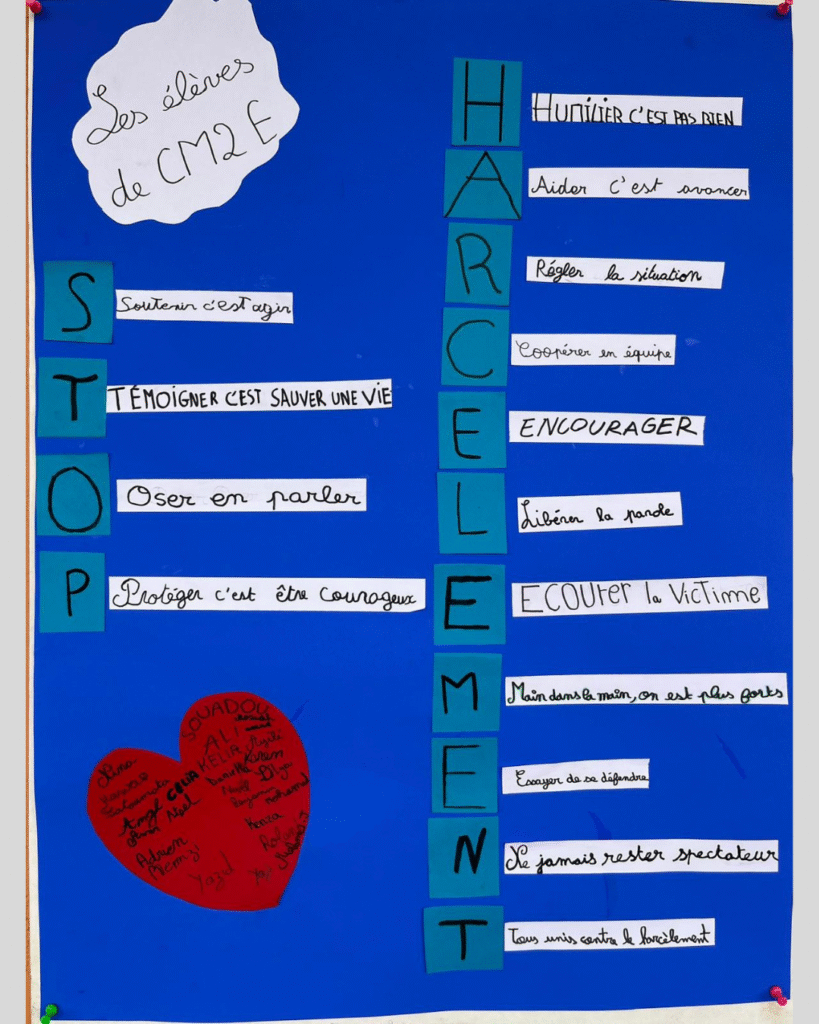 Les élèves
de CM2 E
S Soutenir c'est agir
T TÉMOIGNER C'EST SAUVER UNE VIE
O Oser en parler
P Protéger c'est être courageux
H HUMILIER C'EST PAS BIEN
A Aider c'est avancer
R Régler la situation
C Coopérer en équipe
E ENCOURAGER
L Libérer la parole
E ECOUTER la VICTIME
M Main dans la main, on est plus forts
E Essayer de se défendre
N Ne jamais rester spectateur
T Tous unis contre le harcèlement
SOUADOU
ALI
KELIA
CELIA
Kenza
Adrien
Yazid